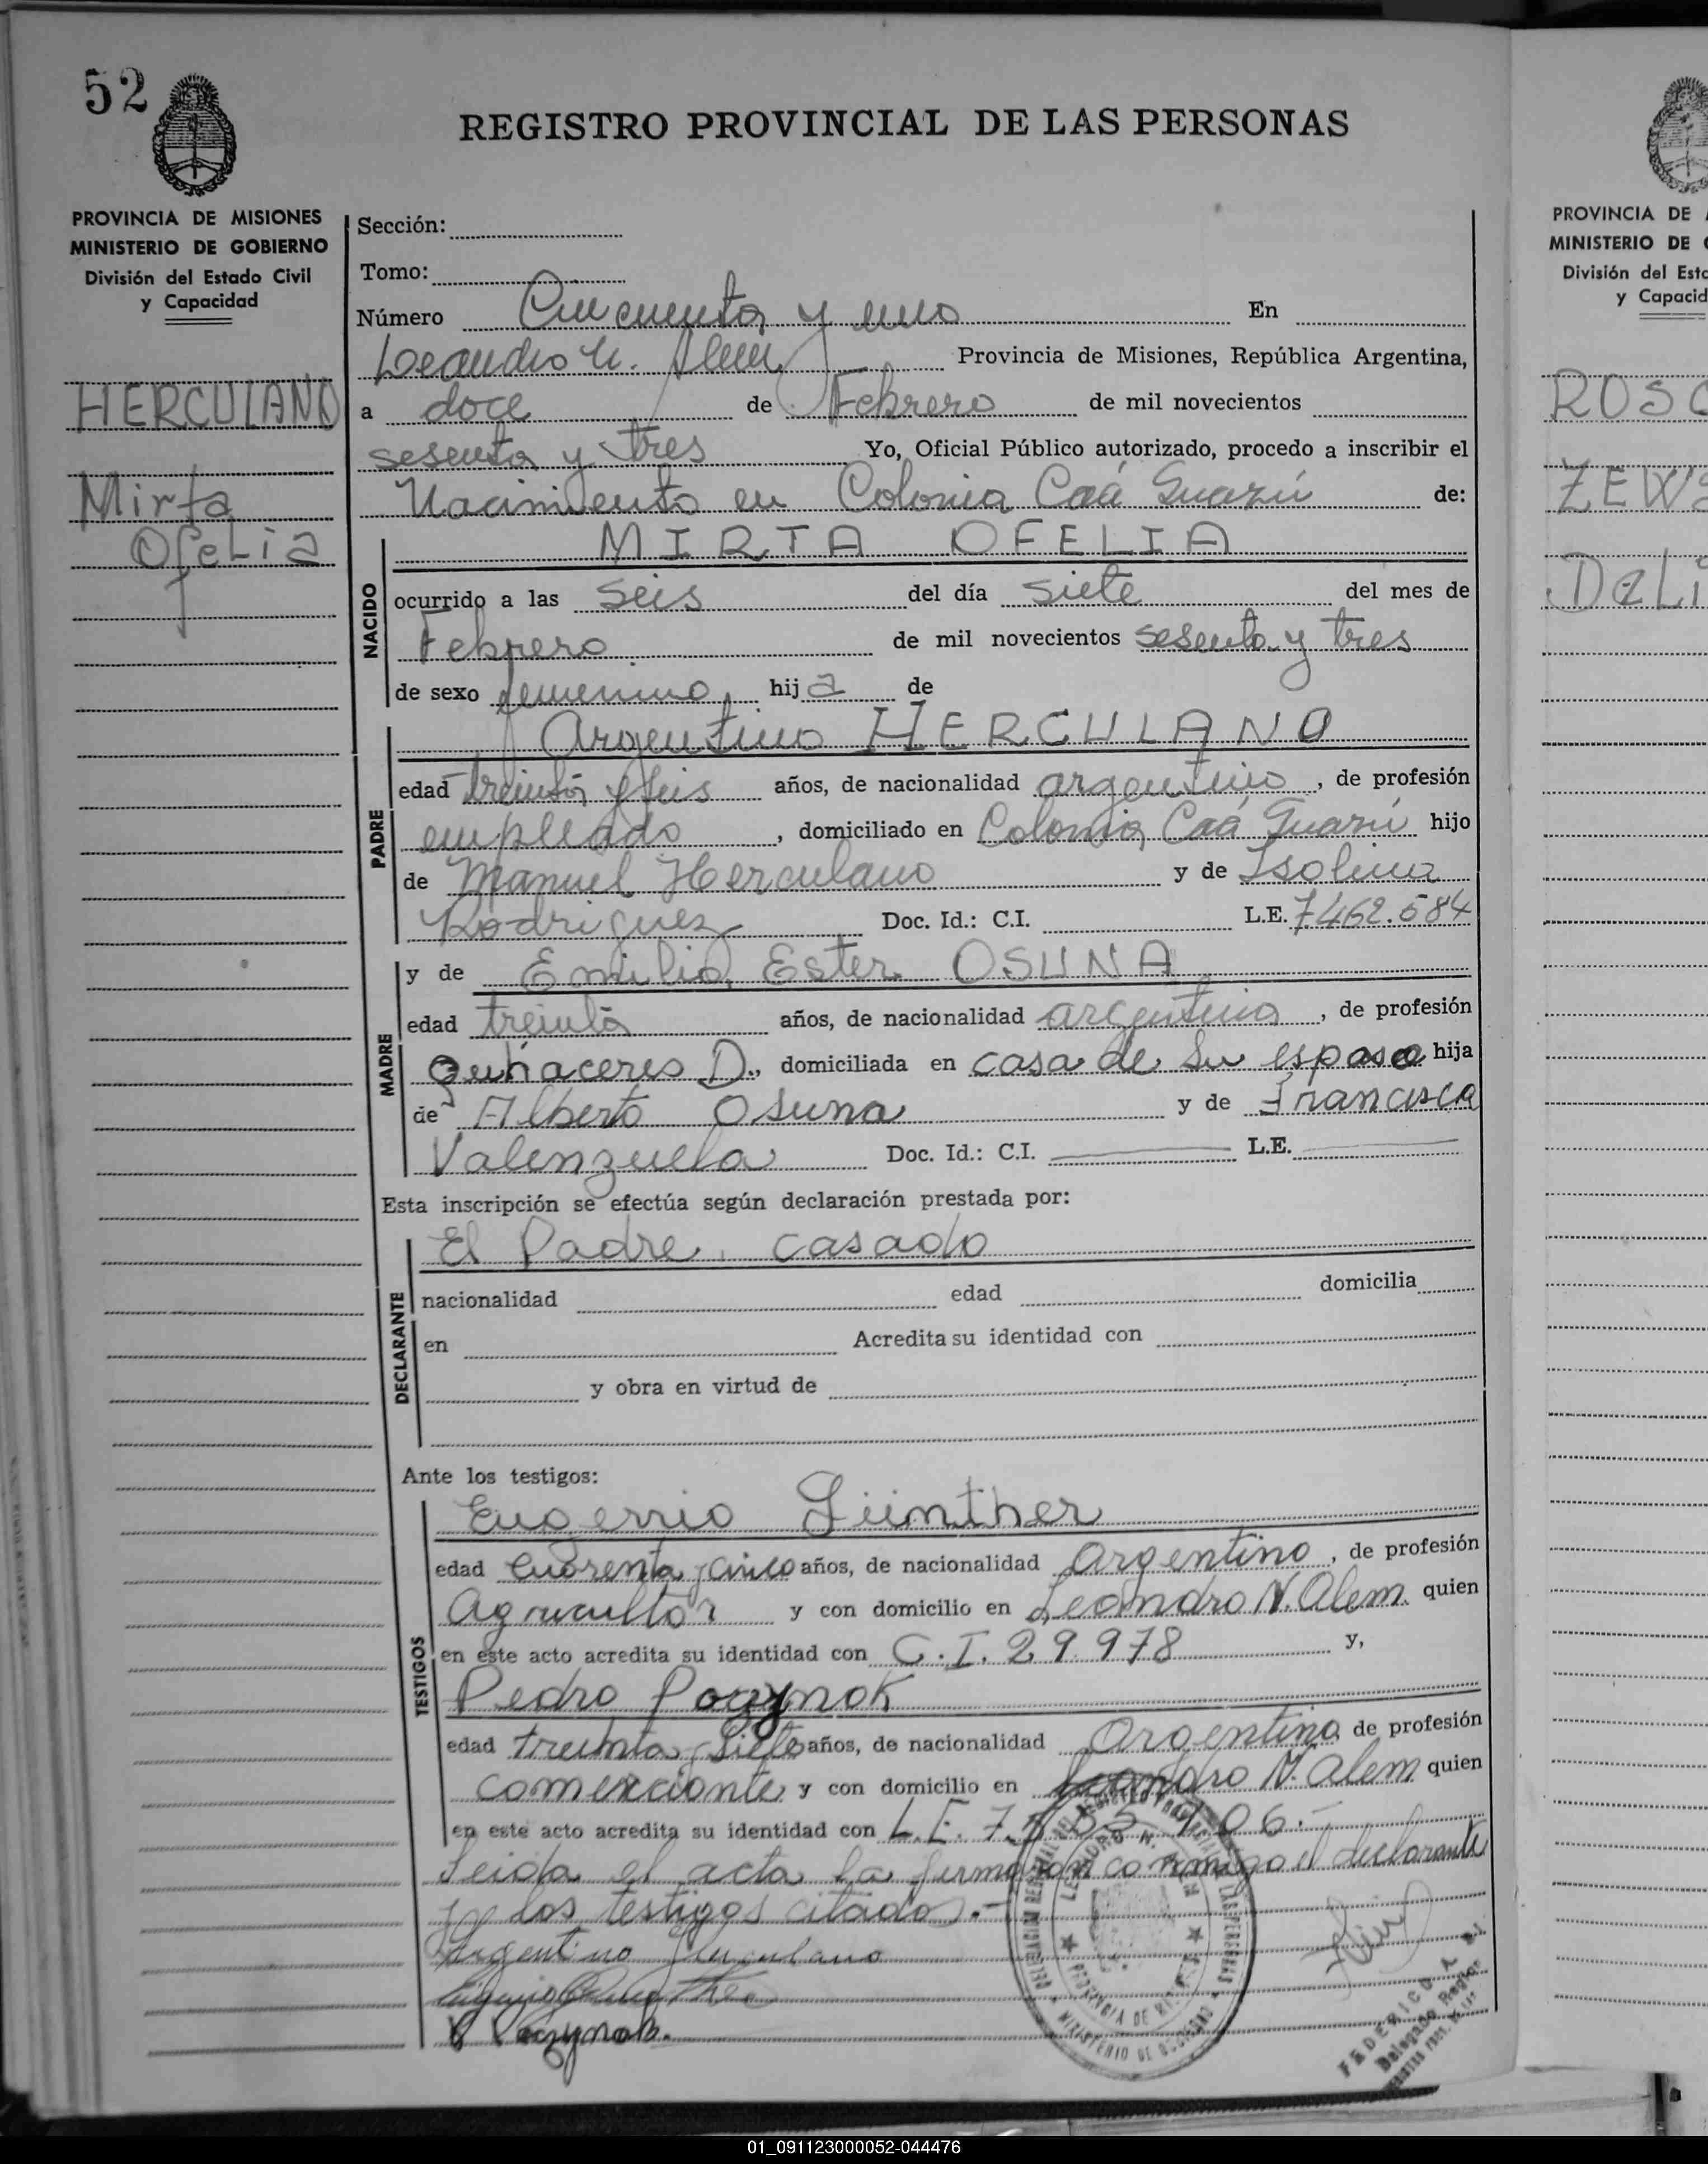 52
REGISTRO PROVINCIAL DE LAS PERSONAS
PROVINCIA DE MISIONES
MINISTERIO DE GOBIERNO
División del Estado Civil
y Capacidad
HERCULANO
Mirta
Ofelia
Sección:
Tomo:
Número Cincuenta y uno En
Leandro N. Alem Provincia de Misiones, República Argentina,
a doce de Febrero de mil novecientos
sesenta y tres Yo, Oficial Público autorizado, procedo a inscribir el
Nacimiento en Colonia Caá Guazú de:
NACIDO
MIRTA OFELIA
ocurrido a las seis del día siete del mes de
Febrero de mil novecientos sesenta y tres
de sexo femenino hija de
PADRE
Argentino HERCULANO
edad treinta y seis años, de nacionalidad argentino, de profesión
empleado, domiciliado en Colonia Caá Guazú hijo
de Manuel Herculano y de Isolina
Rodriguez Doc. Id.: C.I. L.E. 7462.584
MADRE
y de Emilia Ester OSUNA
edad treinta años, de nacionalidad argentina, de profesión
Quehaceres D., domiciliada en casa de su esposo hija
de Alberto Osuna y de Francisca
Valenzuela Doc. Id.: C.I. L.E.
Esta inscripción se efectúa según declaración prestada por:
DECLARANTE
El Padre, casado
nacionalidad edad domicilia
en Acredita su identidad con
y obra en virtud de
Ante los testigos:
TESTIGOS
Eugenio Günther
edad cuarenta y cinco años, de nacionalidad Argentino, de profesión
Agricultor y con domicilio en Leandro N. Alem quien
en este acto acredita su identidad con C.I. 29.978 y,
Pedro Pogynok
edad treinta y siete años, de nacionalidad Argentino de profesión
comerciante y con domicilio en Leandro N. Alem quien
en este acto acredita su identidad con L.E. 7.
Leida el acta la firman conmigo el declarante
y los testigos citados.-
Argentino Herculano
LEANDRO N. ALEM
PROVINCIA DE MISIONES
MINISTERIO DE GOBIERNO
FEDERICO
Delegado
PROVINCIA DE
MINISTERIO DE
División del Esta
y Capacid
ROSC
ZEWS
DELI
01_091123000052-044476